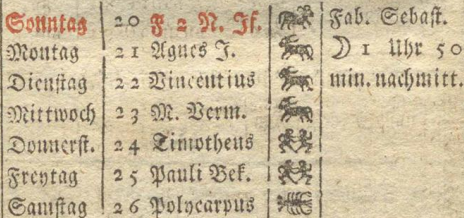 Sonntag 20 F 2 N. Jf. Fab. Sebast.
Montag 21 Agnes J. ☽ 1 Uhr 50
Dienstag 22 Vincentius min. nachmitt.
Mittwoch 23 M. Verm.
Donnerst. 24 Timotheus
Freytag 25 Pauli Bek.
Samstag 26 Polycarpus